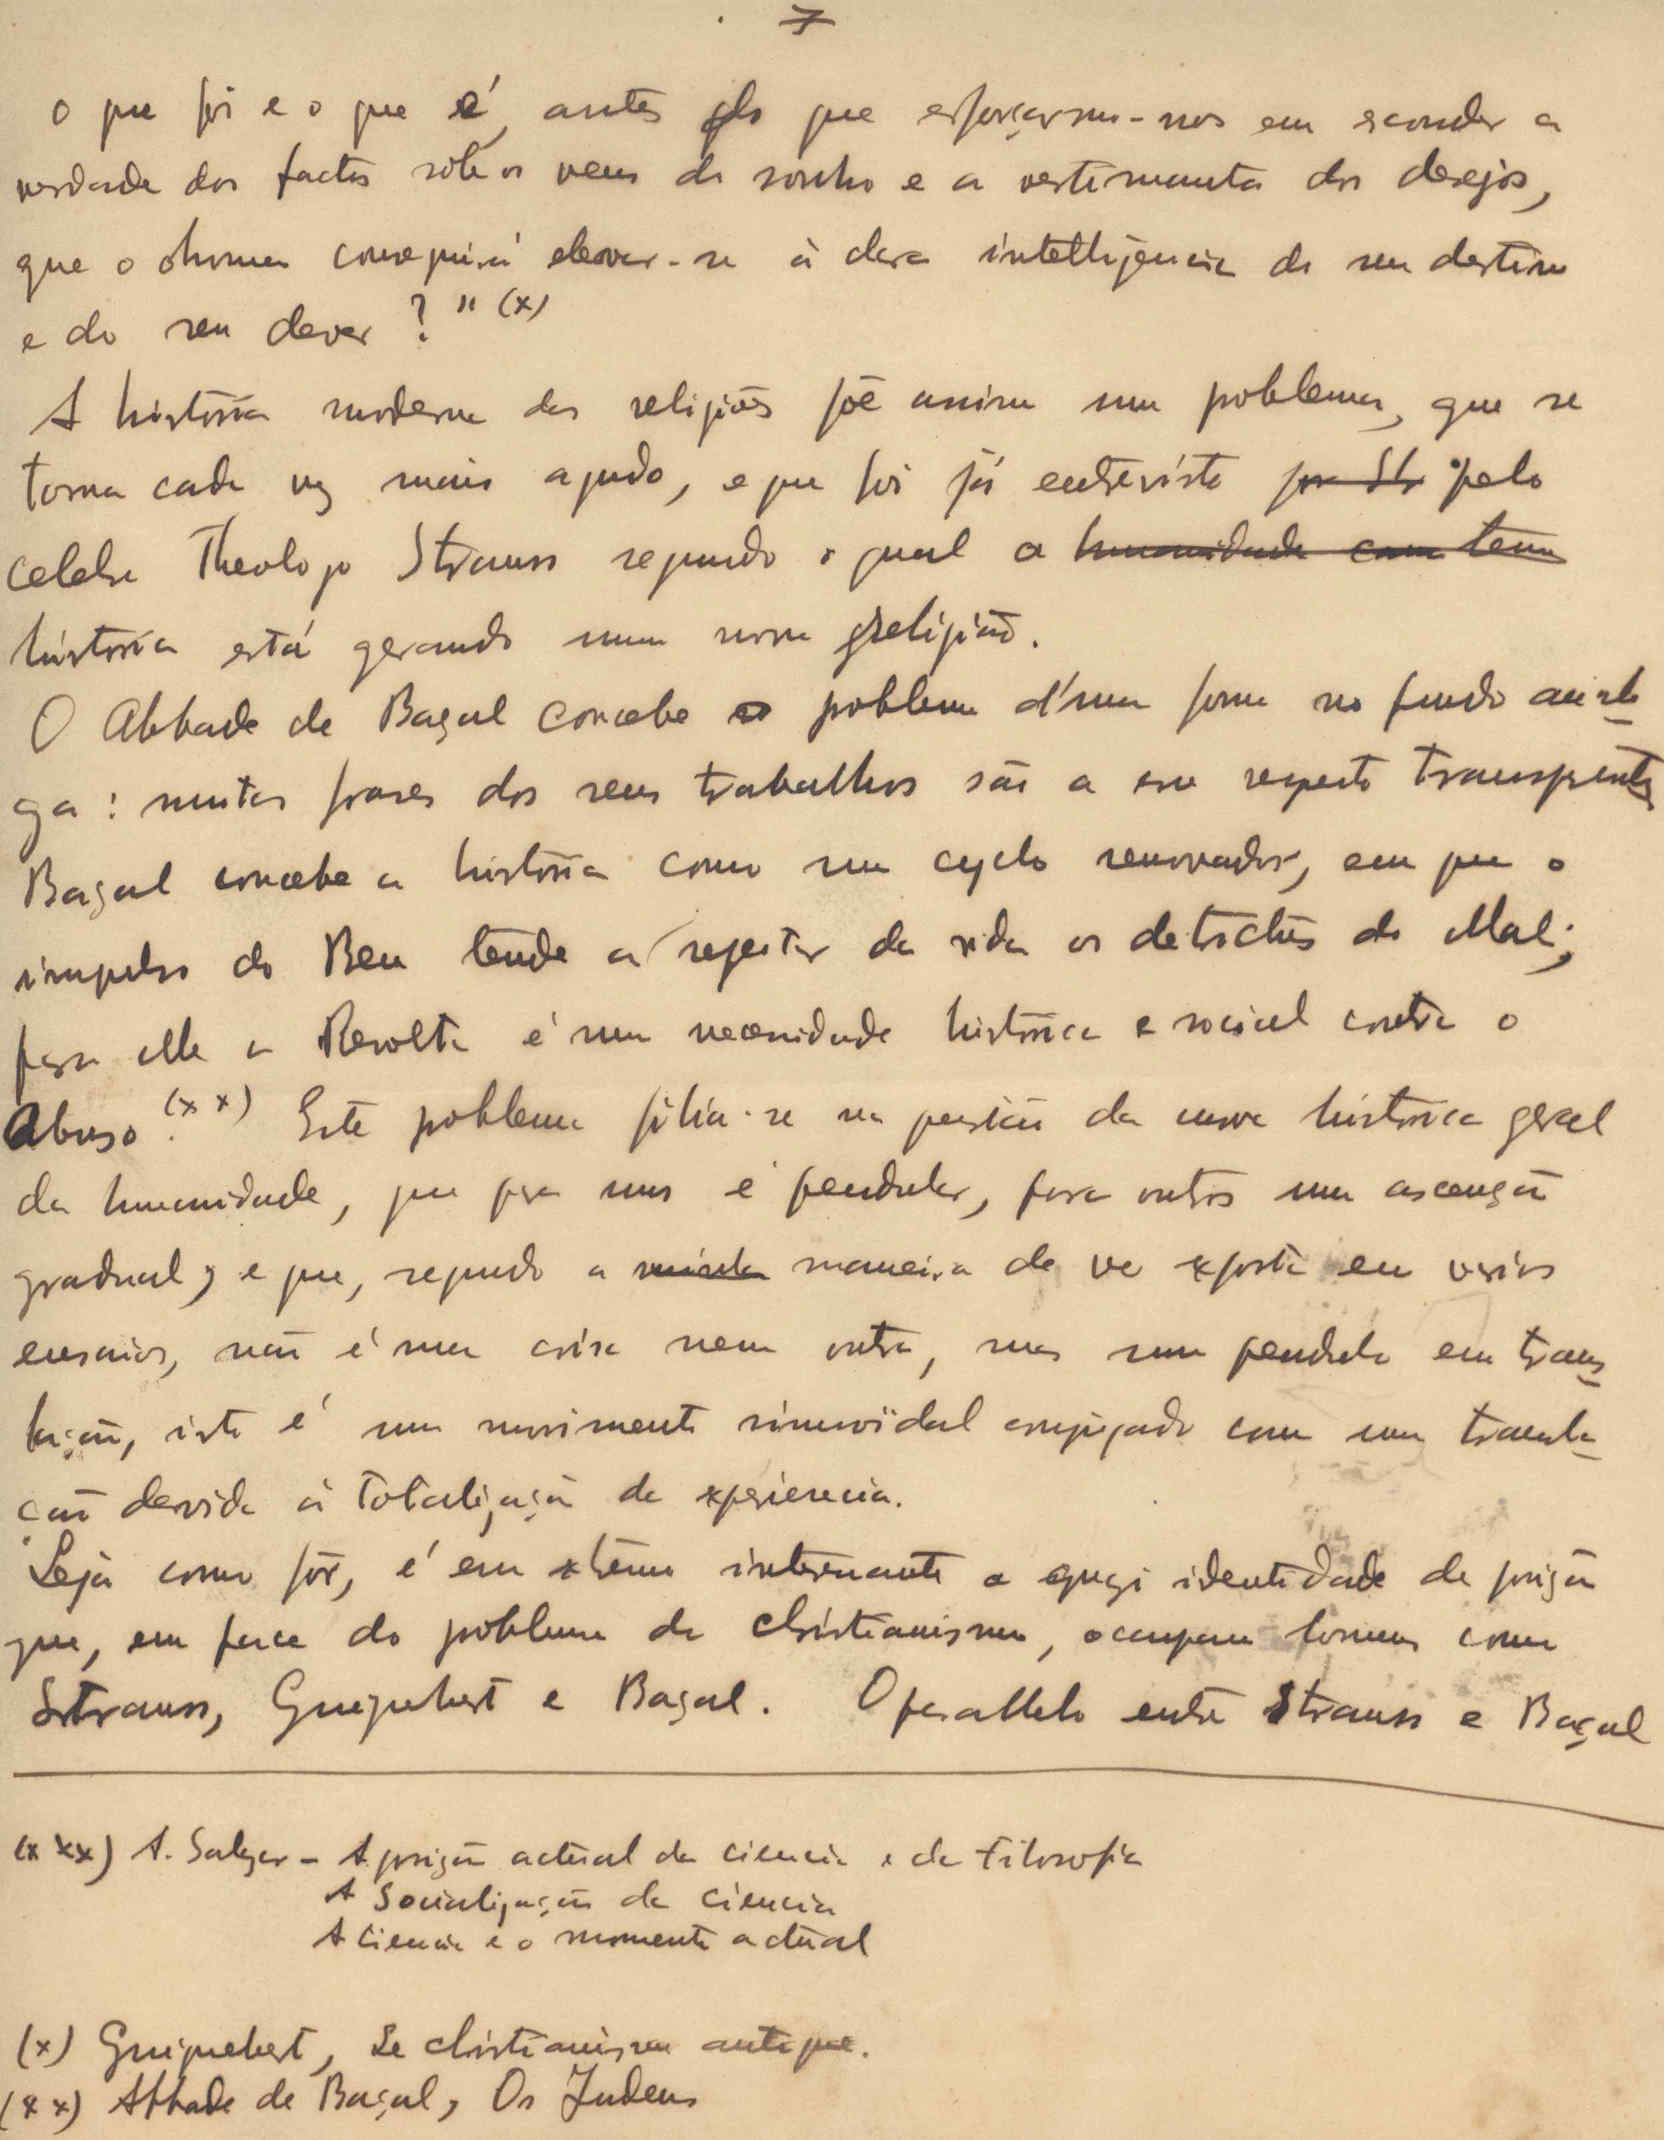 7
o que foi e o que é, antes do que esforçarmo-nos em esconder a
verdade dos factos sob os veus do sonho e a vestimenta dos desejos,
que o homem conseguirá elevar-se á clara intelligencia do seu destino
e do seu dever?" (x)
A história moderna das religiões põe assim um problema, que se
torna cada vez mais agudo, e que foi já entrevisto por St pelo
celebre Theologo Strauss segundo o qual a humanidade com tem
história está gerando uma nova religião.
O Abbade de Baçal concebe o problema d'uma forma no fundo anál-
ga: muitas frases dos seus trabalhos são a esse respeito transparentes
Baçal concebe a história como um cyclo renovador, em que o
impulso do Bem tende a rejeitar da vida os detrictus do Mal;
para elle a Revolta é uma necessidade histórica e social contra o
Abuso. (xx) Este problema filia-se na questão da curva histórica geral
da humanidade, que para uns é pendular, para outros uma ascenção
gradual, e que, segundo a minha maneira de ver exposta em varios
ensaios, não é uma coisa nem outra, mas um pendulo em trans-
lação, isto é um movimento sinusoïdal conjugado com uma transla-
ção devida á totalização da experiencia.
Seja como fôr, é em extremo interessante a quasi identidade de posição
que, em face do problema do christianismo, occupam homens como
Strauss, Guignebert e Baçal. O parallelo entre Strauss e Baçal
(xxx) A. Salazar - A posição actual da ciencia e da Filosofia
A Socialização da Ciencia
A Ciencia e o momento actual
(x) Guignebert, Le christianisme antique.
(xx) Abbade de Baçal, Os Judeus